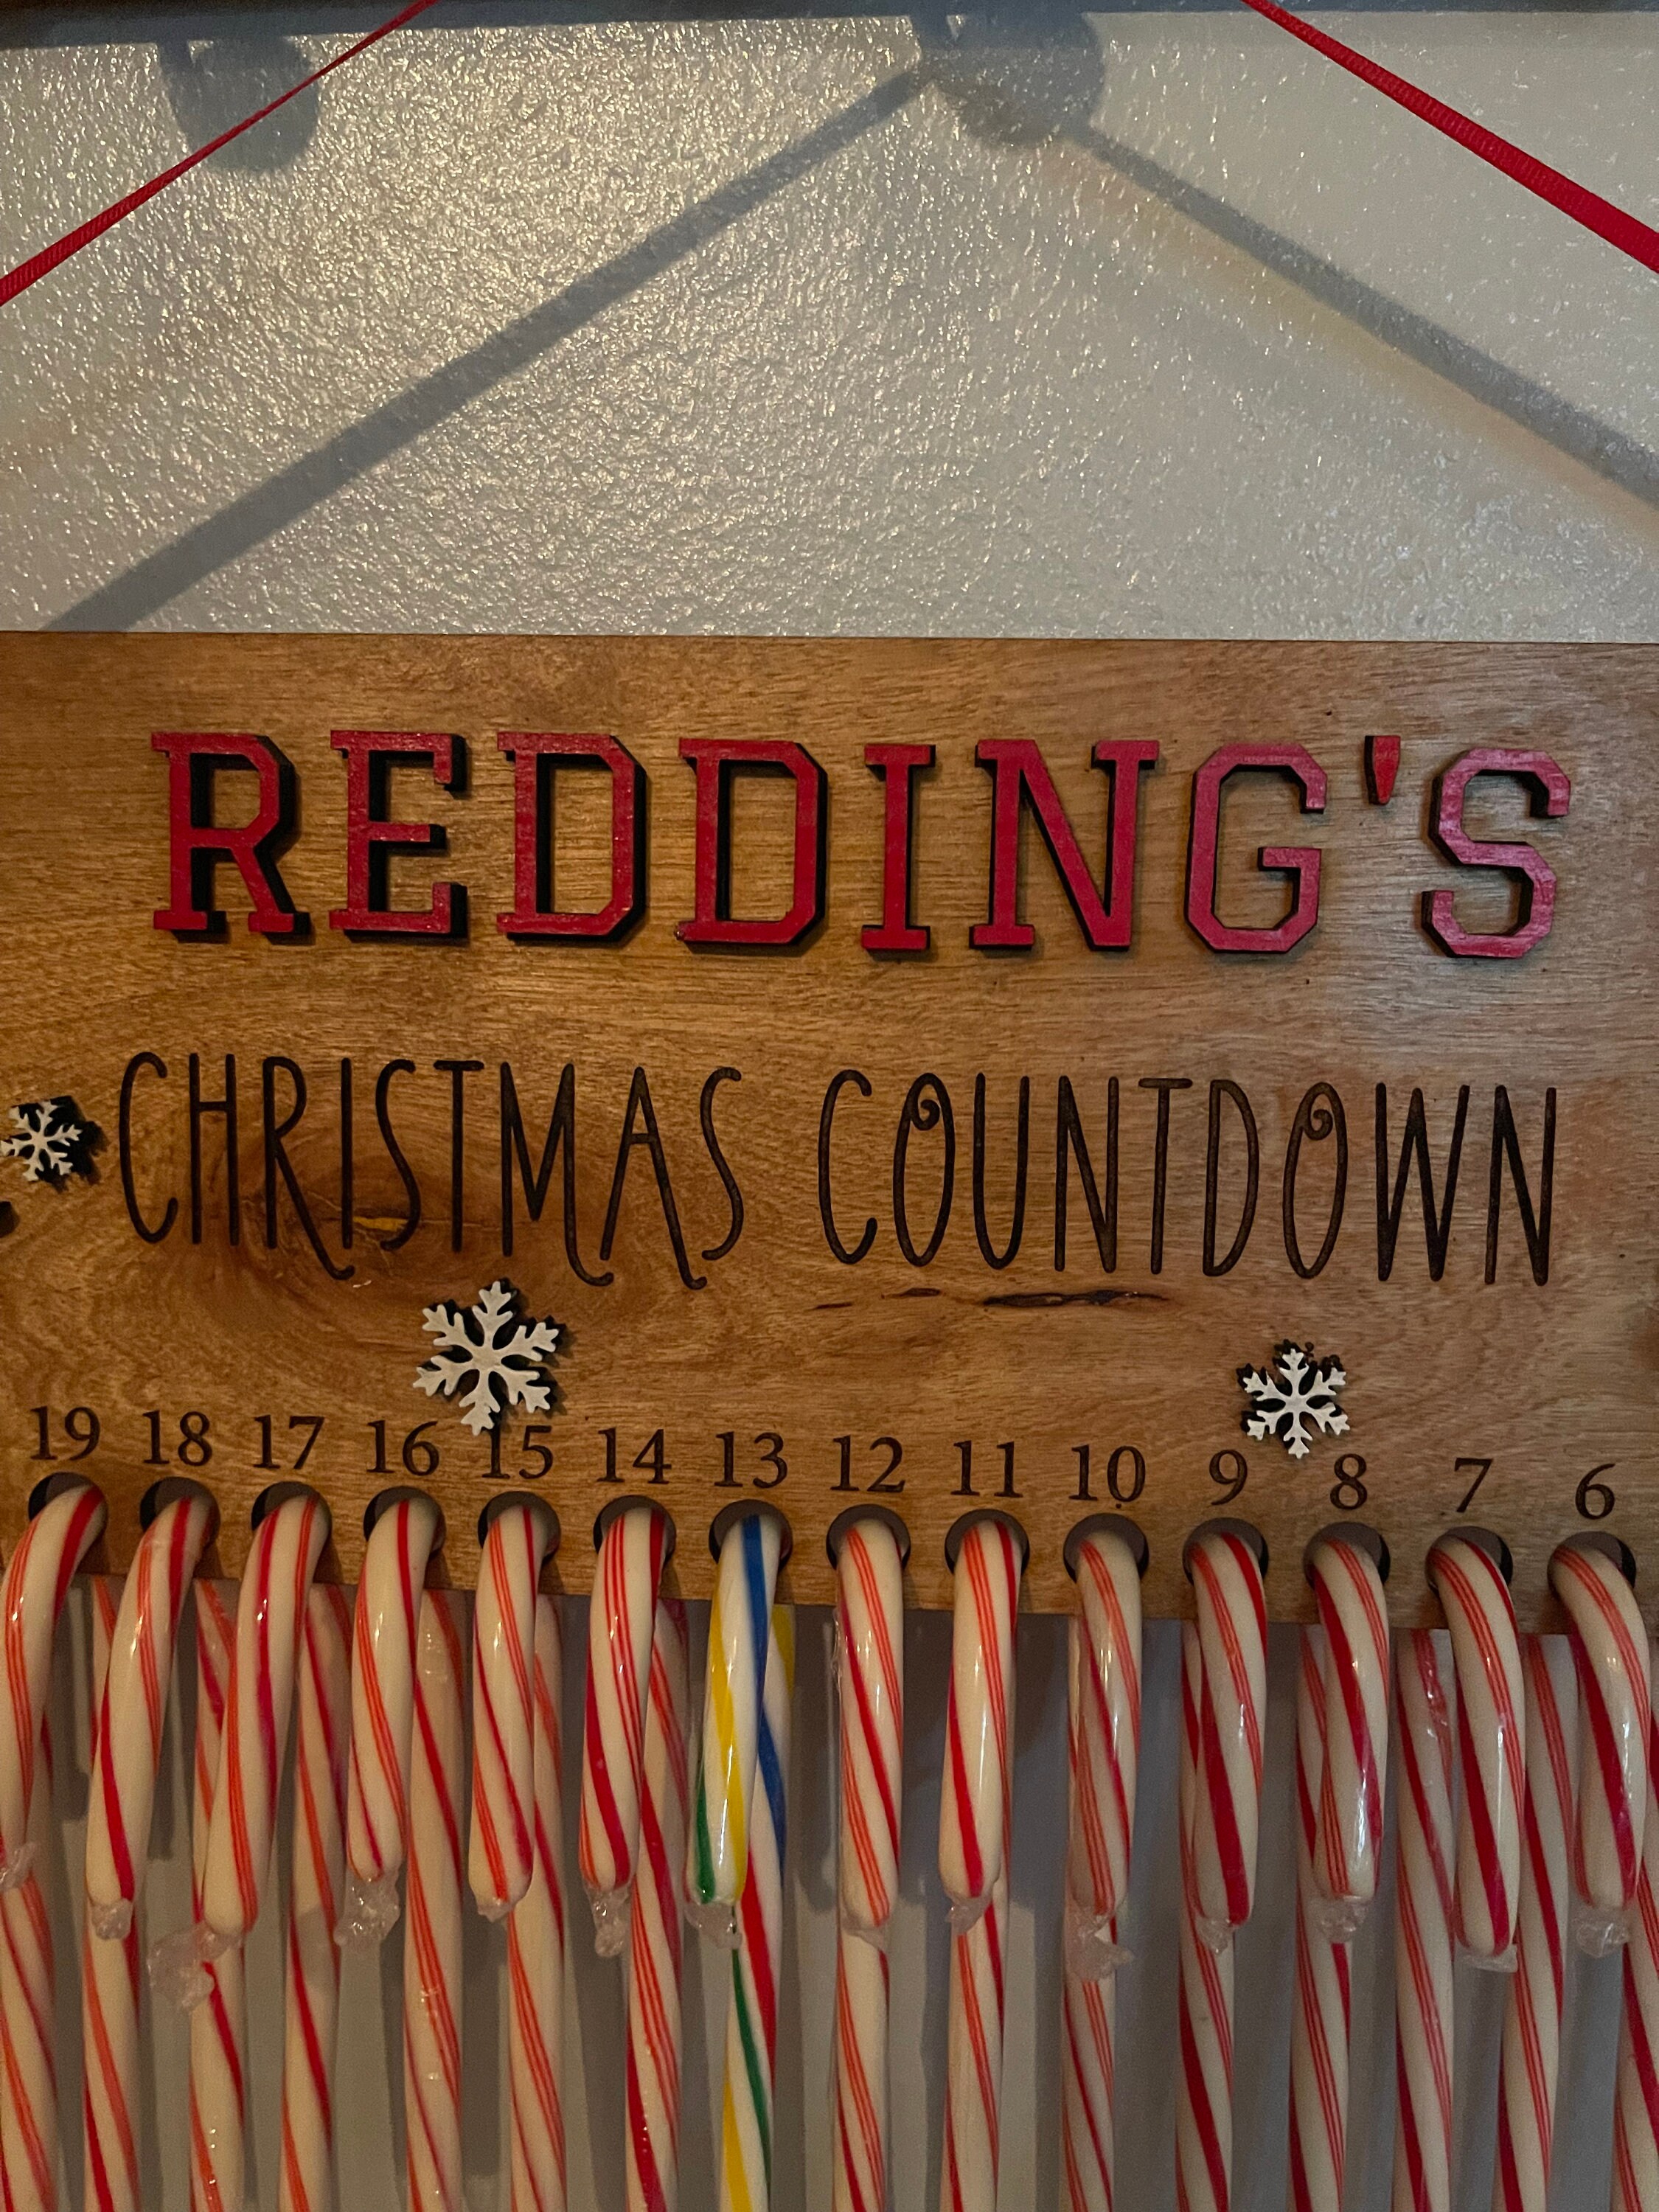 REDDING'S
CHRISTMAS COUNTDOWN
19 18 17 16 15 14 13 12 11 10 9 8 7 6